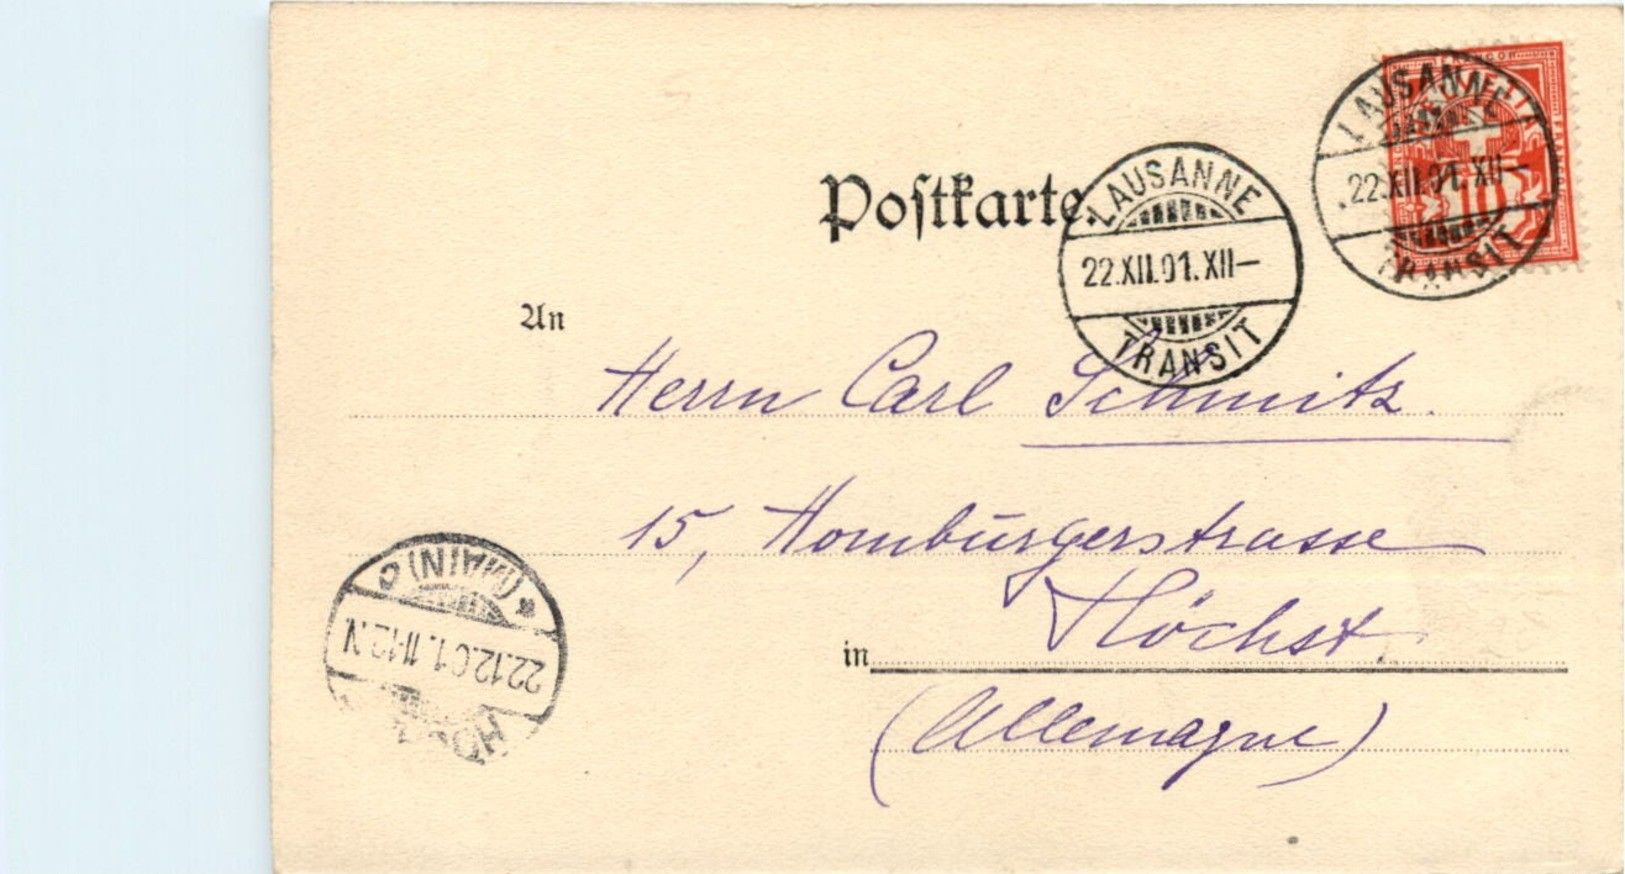 Postkarte.
LAUSANNE
22.XII.01.XII—
TRANSIT
LAUSANNE
22.XII.01.XII—
TRANSIT
10
An
Herrn Carl Schmitz.
15, Homburgerstrasse
in Höchst.
(Allemagne)
(MAIN) C
22.12.01. 11-12 N.